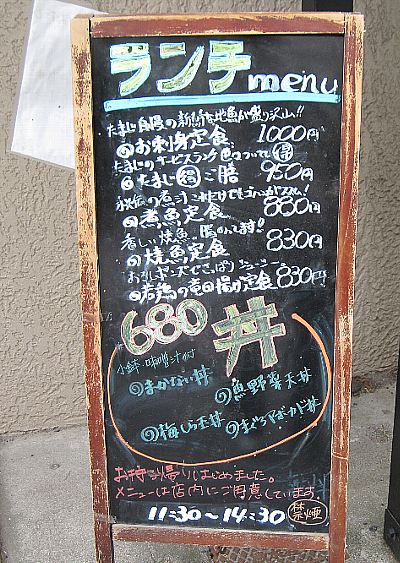 ランチ menu
たまじ自慢の新鮮な地魚が盛り沢山!!
お刺身定食 1000円
たまじのサービスランチ 色々ついて 得
たまじ御膳 950円
秘伝の煮汁 これだけでもごはんがススム!
煮魚定食 880円
香ばしい焼魚
焼魚定食 830円
おろしポン酢でさっぱりジューシー
若鶏の竜田揚げ定食 830円
680 丼
小鉢・味噌汁付
まかない丼 魚野菜天丼
梅しらす丼 まぐろアボカド丼
お持ち帰りはじめました。
メニューは店内にご用意しています
11:30~14:30 禁煙